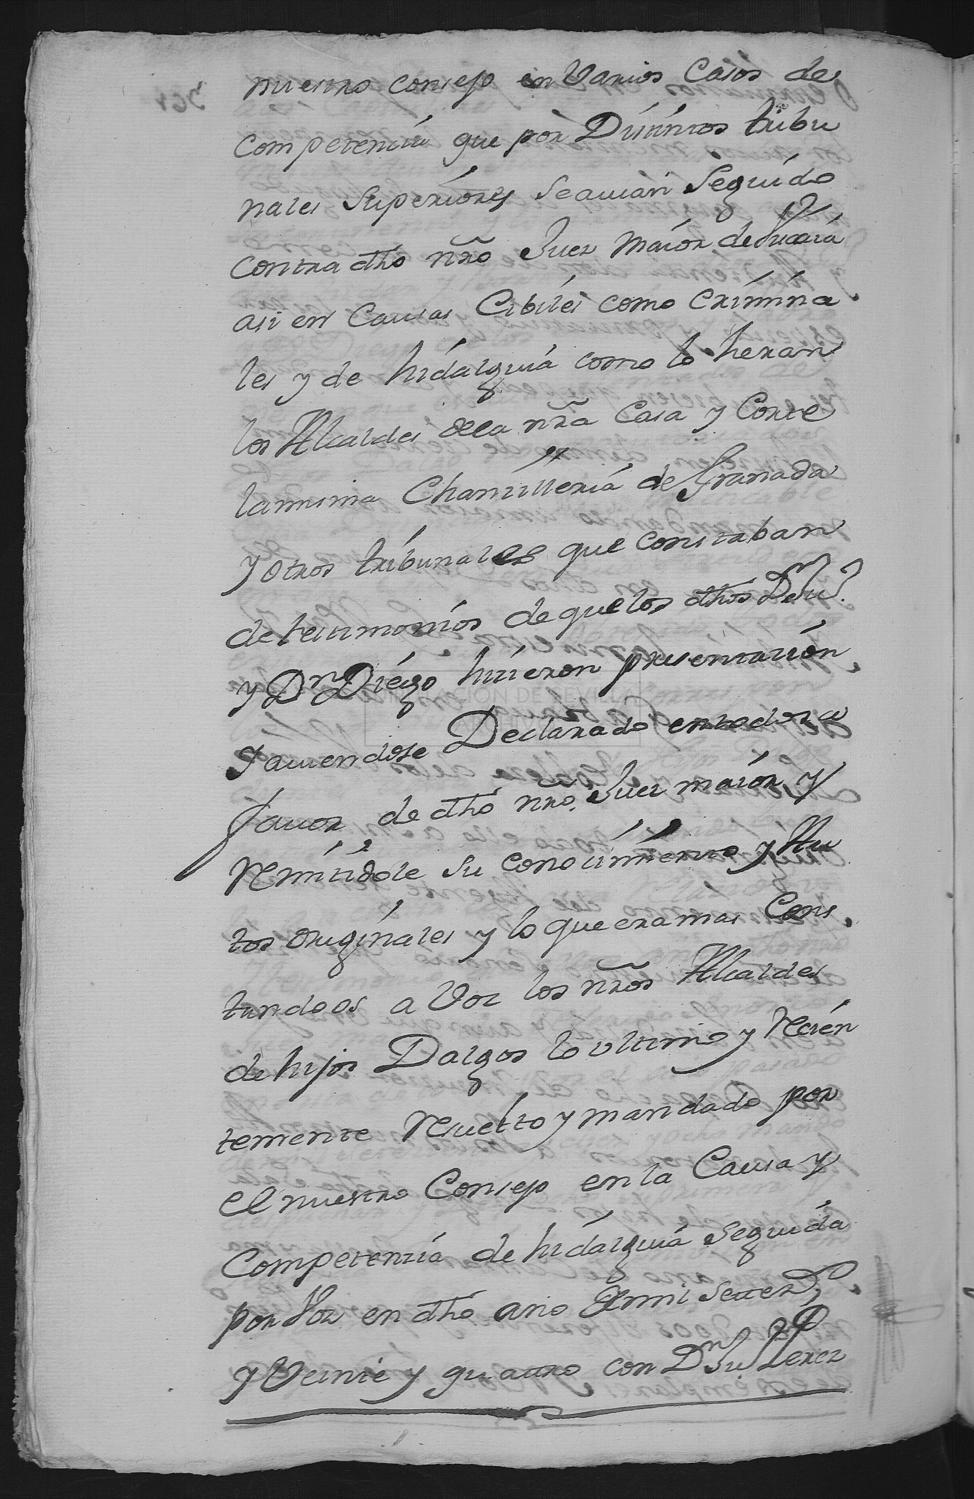 nuestro consejo en Varios Casos de
competencia que por Distintos tribu
nales Superiores seauian Seguido
contra dho nro Juez maior de Vizcaia
asi en Causas Cibiles como Crimina
les y de hidalguia como lo heran
los Alcaldes dela nra Casa y Corte
lamisma Chanzilleria de Granada
y otros tribunales que constaban
de testimonios de que los dhos Dn Ju.º
y Dn Diego hizieron presentazion
y auiendose Declarado entodos a
fauor de dho nro Juez maior y
Remitidole su conozimiento y Au
tos originales y lo que era mas Cons
tandoos a Vos los nros Alcaldes
de hijos Dalgos lo ultimo y Recien
temente Resuelto y mandado por
el nuestro Consejo en la Causa y
Competenzia de hidalguia Seguida
por Vos en dho año mil setez.s
y Veinte y quatro con Dn Ju.º Perez